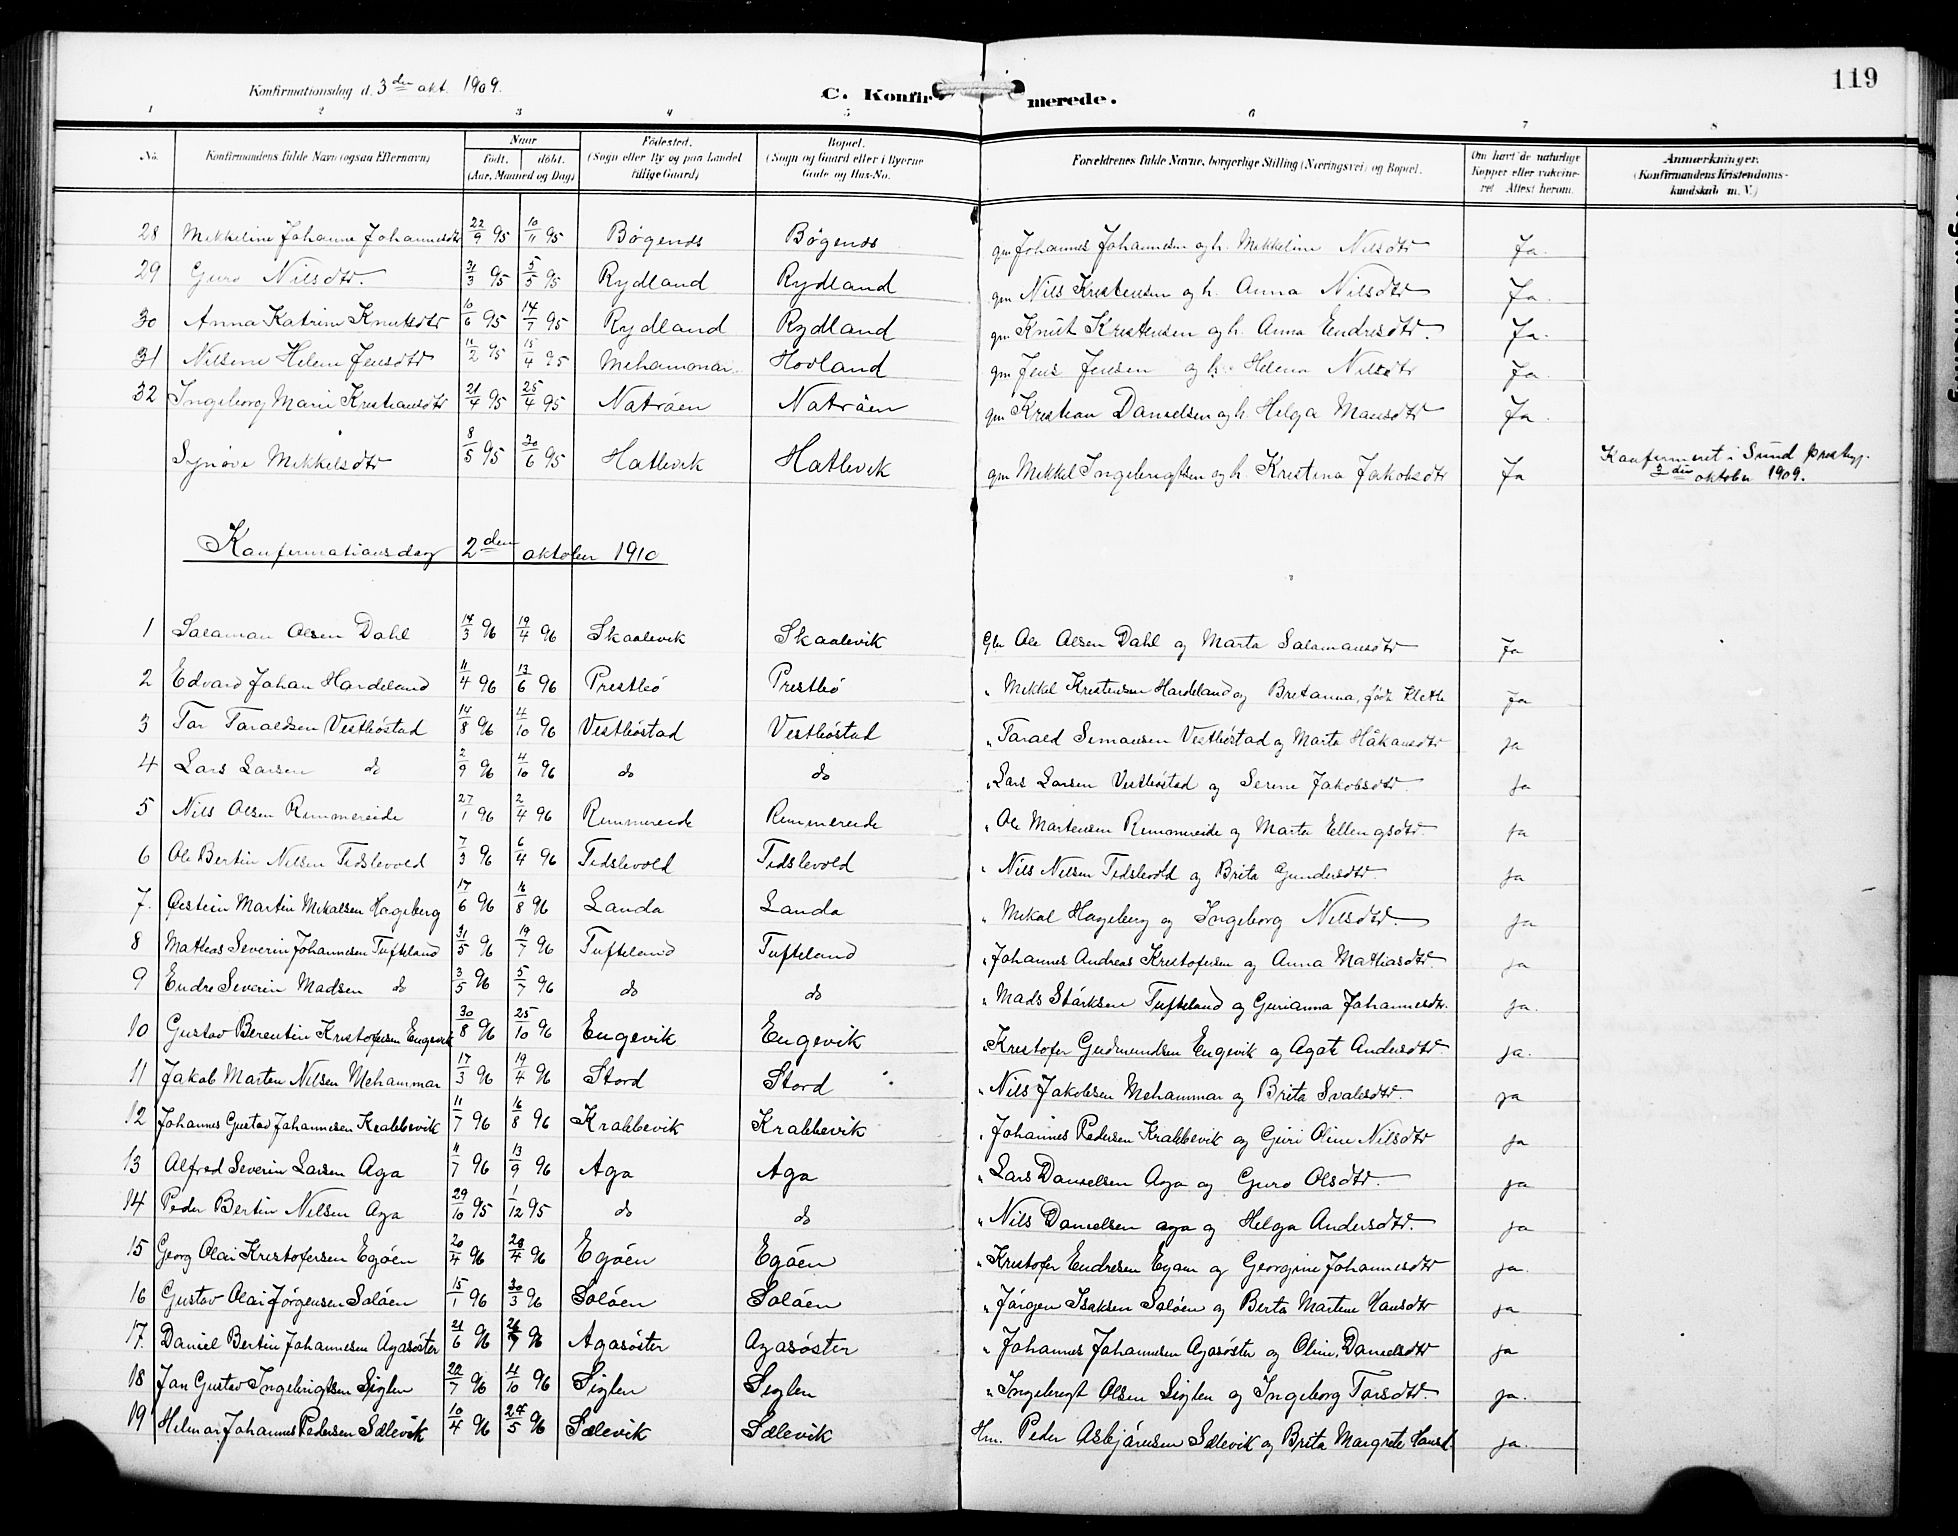 119
Konfirmationsdag d. 3die okt. 1909.
C. Konfirmerede.
1 2 3 4 5 6 7 8
No. Konfirmandens fulde Navn (ogsaa Efternavn) Naar født. døbt. (Aar, Maaned og Dag) Fødested. (Sogn eller By og paa Landet tillige Gaard) Bopæl. (Sogn og Gaard eller i Byerne Gade og Hus-No. Forældrenes fulde Navne, borgerlige Stilling (Næringsvei) og Bopæl. Om havt de naturlige Kopper eller vakcineret. Attest herom. Anmærkninger. (Konfirmandens Kristendomskundskab m. V.)
28 Mekkeline Johanne Johannesdtr 22/9 95 10/11 95 Bögenes Bögenes gm Johannes Johannesen og h. Mekkeline Nilsdtr Ja.
29 Guro Nilsdtr. 31/3 95 5/5 95 Rydland Rydland gm Nils Kristensen og h. Anna Nilsdtr Ja.
30 Anna Katrine Knutsdtr 10/6 95 14/7 95 Rydland Rydland gm Knut Kristensen og h. Anna Endresdtr. Ja.
31 Nilsine Helene Jensdtr 11/2 95 15/4 95 Mehammar Hovland gm Jens Jensen og h. Helena Nilsdtr Ja
32 Ingeborg Marie Kristiansdtr 21/4 95 25/4 95 Nateröen Nateröen gm Kristian Danielsen og h. Helga Mansdtr Ja.
Synöve Mekkelsdtr 8/5 95 30/6 95 Hatlevik Hatlevik gm Mekkel Ingebrigtsen og h. Kristina Jakobsdtr Ja Konfirmeret i Sund prestegj. 3die oktober 1909.
Konfirmationsdag 2den oktober 1910
1 Salaman Olsen Dahl 14/3 96 19/4 96 Skaalevik Skaalevik Gbr Ole Olsen Dahl og Marta Salamansdtr Ja
2 Edvard Johan Hardeland 11/4 96 13/6 96 Prestbö Prestbö " Mekkel Kristensen Hardeland og Bretanna, födt Klette Ja
3 Tor Taraldsen Vestböstad 14/8 96 4/10 96 Vestböstad Vestböstad " Tarald Simonsen Vestböstad og Marta Håkansdtr ja
4 Lars Larsen do 2/9 96 4/10 96 do do " Lars Larsen Vestböstad og Serine Jakobsdtr. ja
5 Nils Olsen Rimmereide 27/1 96 2/4 96 Rimmereide Rimmereide " Ole Martensen Rimmereide og Marta Ellengsdtr. ja
6 Ole Bertin Nilsen Tidslevold 7/3 96 6/4 96 Tidslevold Tidslevold " Nils Nilsen Tidslevold og Brita Gundersdtr. ja
7. Øistein Martin Mikalsen Hageberg 17/6 96 16/8 96 Landa Landa " Mikal Hageberg og Ingeborg Nilsdtr. ja
8 Mathias Severin Johannesen Tufteland 31/5 96 19/7 96 Tufteland Tufteland " Johannes Andreas Kristofersen og Anna Mathiasdtr. ja
9 Endre Severin Madsen do 3/5 96 5/7 96 do do " Mads Störksen Tufteland og Gurianna Johannesdtr. ja.
10 Gustav Berentin Kristofersen Engevik 30/8 96 25/10 96 Engevik Engevik " Kristofer Gudmundsen Engevik og Agat Andersdtr. ja.
11 Jakob Martin Nilsen Mehammar 17/3 96 19/4 96 Stord Stord " Nils Jakobsen Mehammar og Brita Svalesdtr. ja
12 Johannes Gustav Johannesen Krabbevik 11/7 96 16/8 96 Krabbevik Krabbevik " Johannes Pedersen Krabbevik og Guri Oline Nilsdtr ja
13 Alfred Severin Larsen Aga 11/7 96 13/9 96 Aga Aga " Lars Danielsen Aga og Guro Olsdtr. ja
14 Peder Bertin Nilsen Aga 29/10 95 1/12 95 do do " Nils Danielsen aga og Helga Andersdtr. ja
15 Georg Olai Kristofersen Egöen 20/4 96 28/4 96 Egöen Egöen " Kristofer Endresen Egöen og Georgine Johannesdtr ja.
16 Gustav Olai Jörgensen Solöen 15/1 96 30/3 96 Solöen Solöen " Jörgen Isaksen Solöen og Berta Martine Hansdtr ja
17. Daniel Bertin Johannesen Agasöster 21/6 96 96 Agasöster Agasöster " Johannes Johannesen Agasöster og Oline Danielsdtr ja
18 Jan Gustav Ingebrigtsen Siglen 22/7 96 4/10 96 Siglen Siglen " Ingebrigt Olsen Siglen og Ingeborg Torsdtr. ja.
19 Helmar Johannes Pedersen Sælevik 10/4 96 24/5 96 Sælevik Sælevik Hm. Peder Asbjörnsen Sælevik og Brita Margrete Hansd. ja.